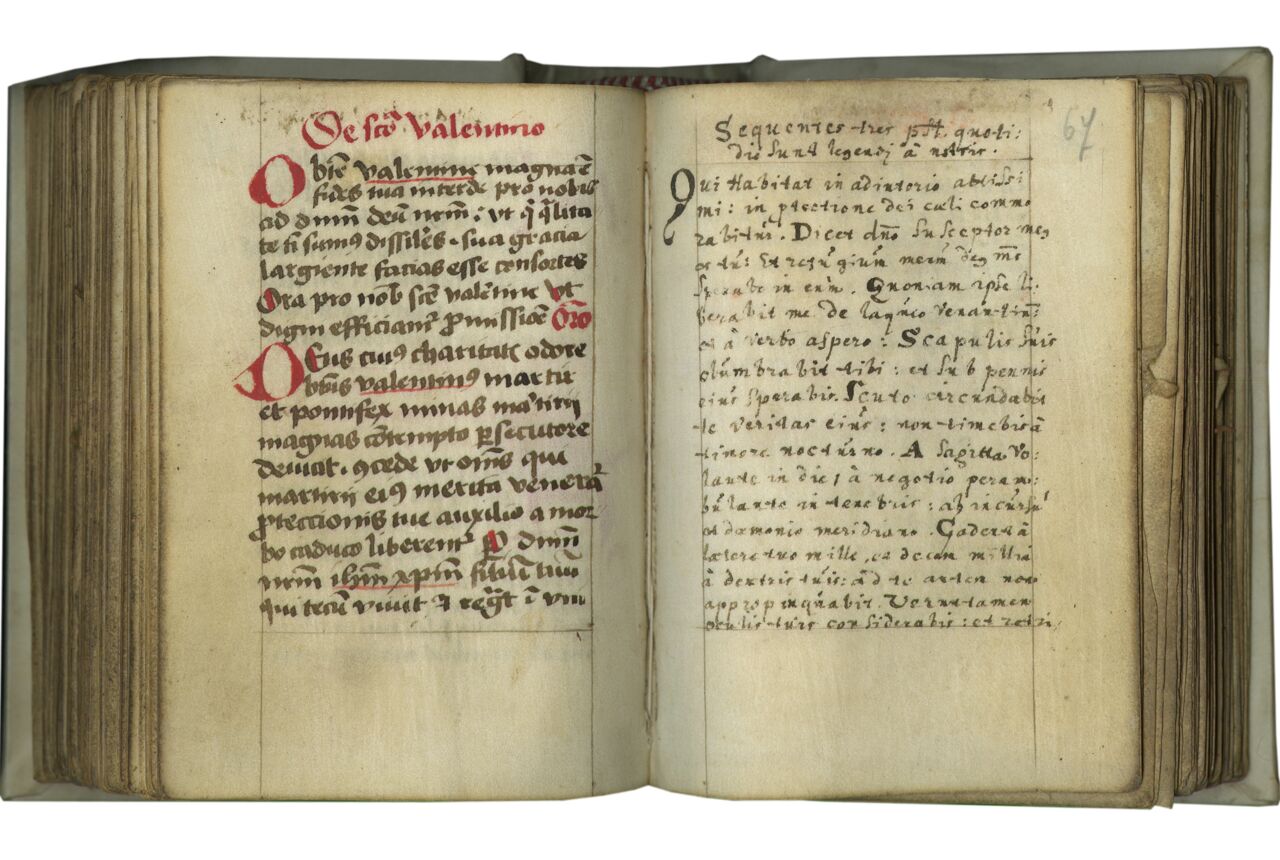 De scto Valentino
O btē valentine magna ē
fides tua intercede pro nobis
ad dnm deū nrm : vt q̄ q̄lita
te ti sumus dissiles . sua gracia
largiente facias esse consortes
Ora pro nob scte valētine vt
digni efficianr pmissiōe Oro
Deus cuius charitatis odore
btus valentinus martir
et pontifex minas martirij
magnas cōtempto psecutore
deuicit . ꝯcede vt oms qui
martirij eius merita venerār
ptectionis tue auxilio a mor
bo caduco liberentr P dnm
nrm ihm xpm filiū tuū
qui tecū viuit & regt ī vni
67
Sequentes tres psl. quoti:
die sunt legendj à nobis.
Qui Habitat in adiutorio altissi
mi: in ptectione dei cæli commo
rabitur. Dicet dno susceptor meus
es tu: Et refugium meum deus ms
sperabo in eum. Quoniam ipse li:
berabit me de laqueo venantium:
et à verbo aspero: Scapulis suis
obumbrabit tibi: et sub pennis
eius sperabis. Scuto circundabit
te veritas eius: non timebis à
timore nocturno. A sagitta vo:
lante in die, à negotio peram:
bulante in tenebris: ab incursu
et dæmonio meridiano. Cadent à
latere tuo mille, et decem millia
à dextris tuis: ad te autem non
appropinquabit. Veruntamen
oculis tuis considerabis: et retri